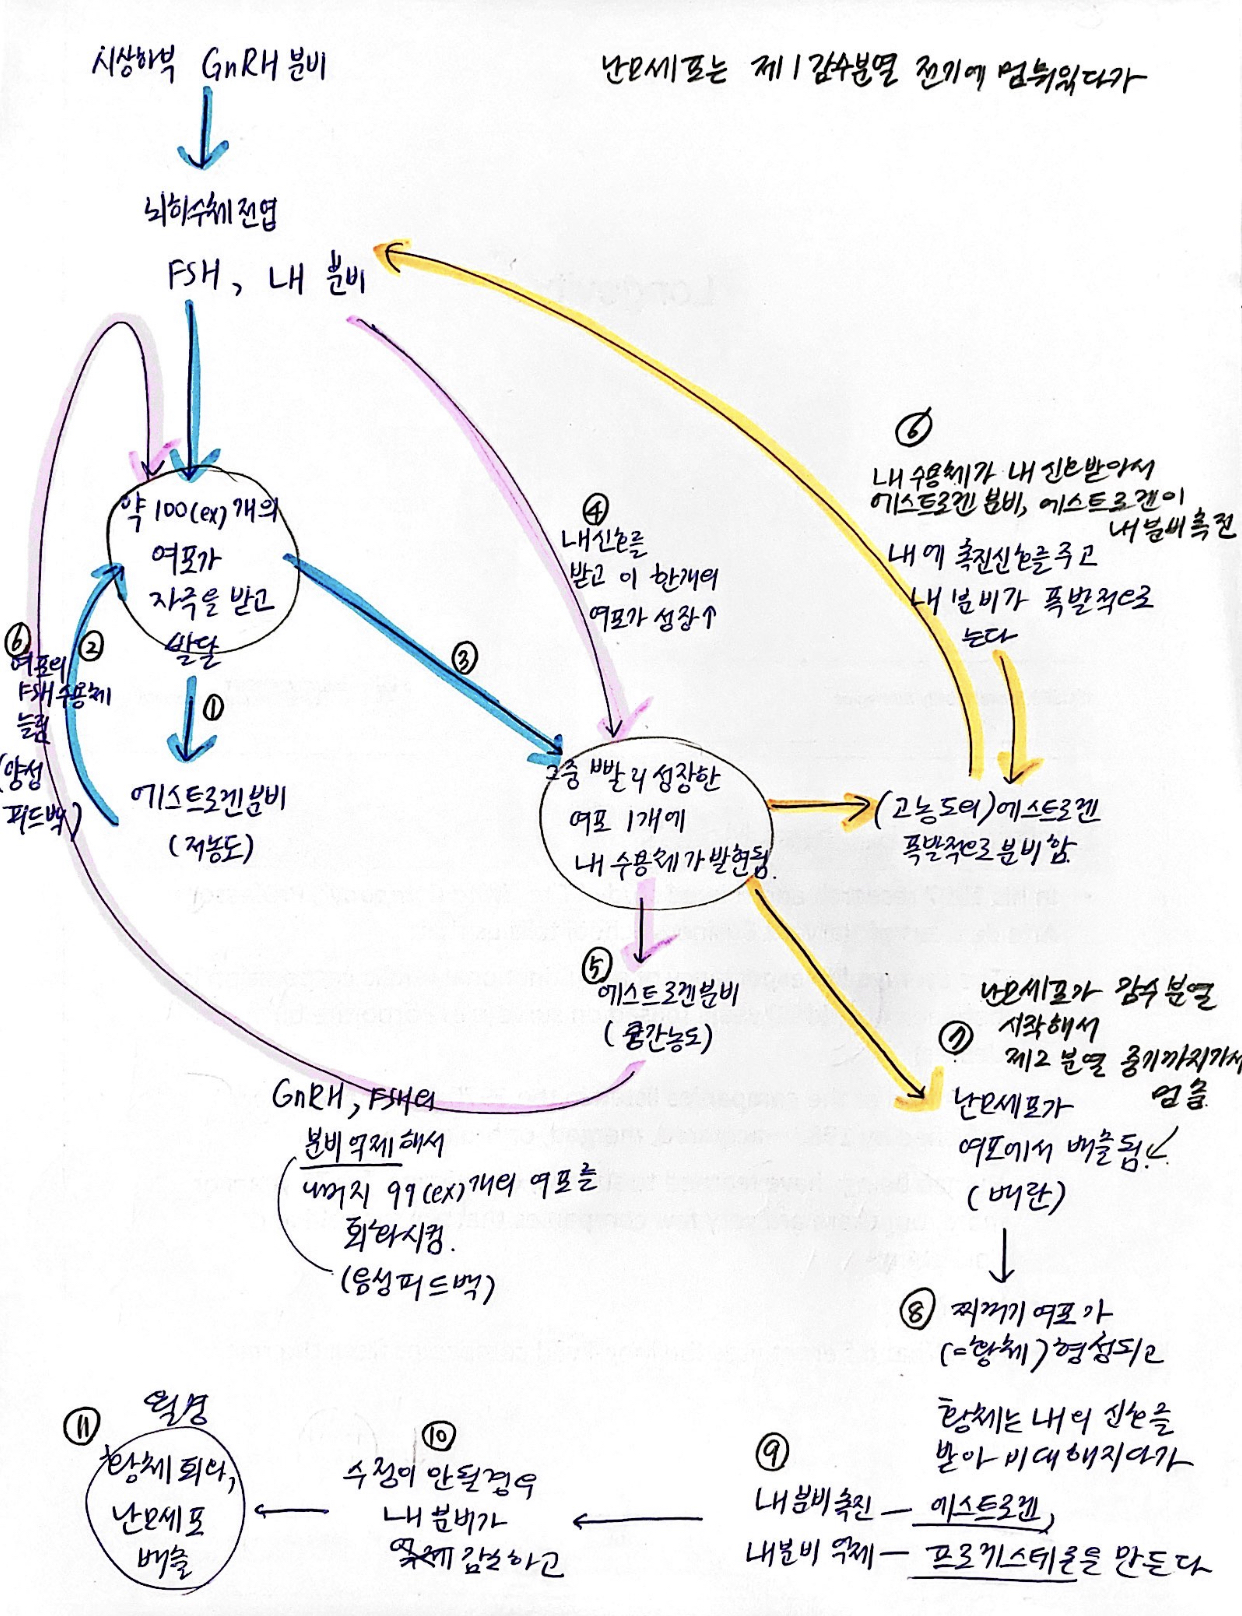 시상하부 GnRH 분비
난모세포는 제1감수분열 전기에 멈춰있다가
뇌하수체전엽
FSH, LH 분비
⑥
LH 수용체가 LH 신호받아서
에스트로겐 분비, 에스트로겐이
LH분비촉진
LH에 촉진신호를 주고
LH 분비가 폭발적으로
는다
약 100(ex)개의
여포가
자극을 받고
발달
④
LH신호를
받고 이 한개의
여포가 성장↑
③
⑥
여포의
FSH수용체
늘림
(양성
피드백)
②
①
에스트로겐분비
(저농도)
그중 빨리 성장한
여포 1개에
LH 수용체가 발현됨.
(고농도의) 에스트로겐
폭발적으로 분비함.
⑤
에스트로겐분비
(중간농도)
GnRH, FSH의
분비억제해서
나머지 99(ex)개의 여포를
퇴화시킴.
(음성피드백)
난모세포가 감수분열
시작해서
제2 분열 중기까지가서
멈춤
⑦
난모세포가
여포에서 배출됨.
(배란)
⑧ 찌꺼기 여포가
(=황체) 형성되고
황체는 LH의 신호를
받아 비대해지다가
⑨
LH분비촉진 — 에스트로겐,
LH분비 억제 — 프로게스테론을 만든다
⑩
수정이 안될경우
LH 분비가
감소하고
⑪
월경
황체 퇴화,
난모세포
배출